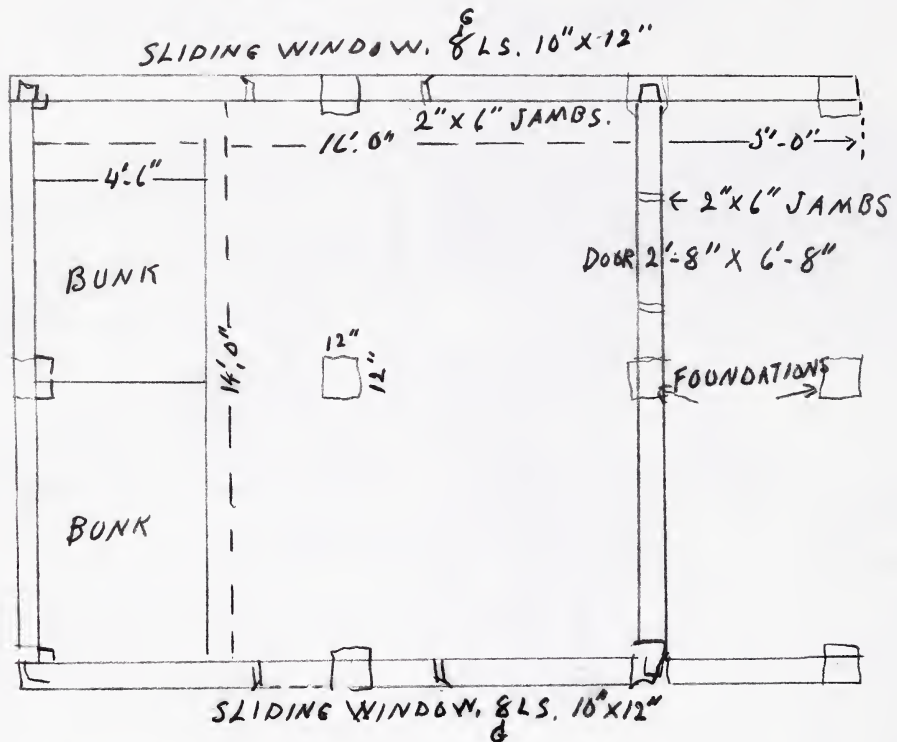 SLIDING WINDOW. 8 LS. 10" X 12"
G
2" X 6" JAMBS.
16'. 0"
5'-0"
4'-6"
← 2" X 6" JAMBS
DOOR 2'-8" X 6'-8"
BUNK
14'. 0"
12"
12"
FOUNDATIONS
BUNK
SLIDING WINDOW. 8 LS. 10" X 12"
G